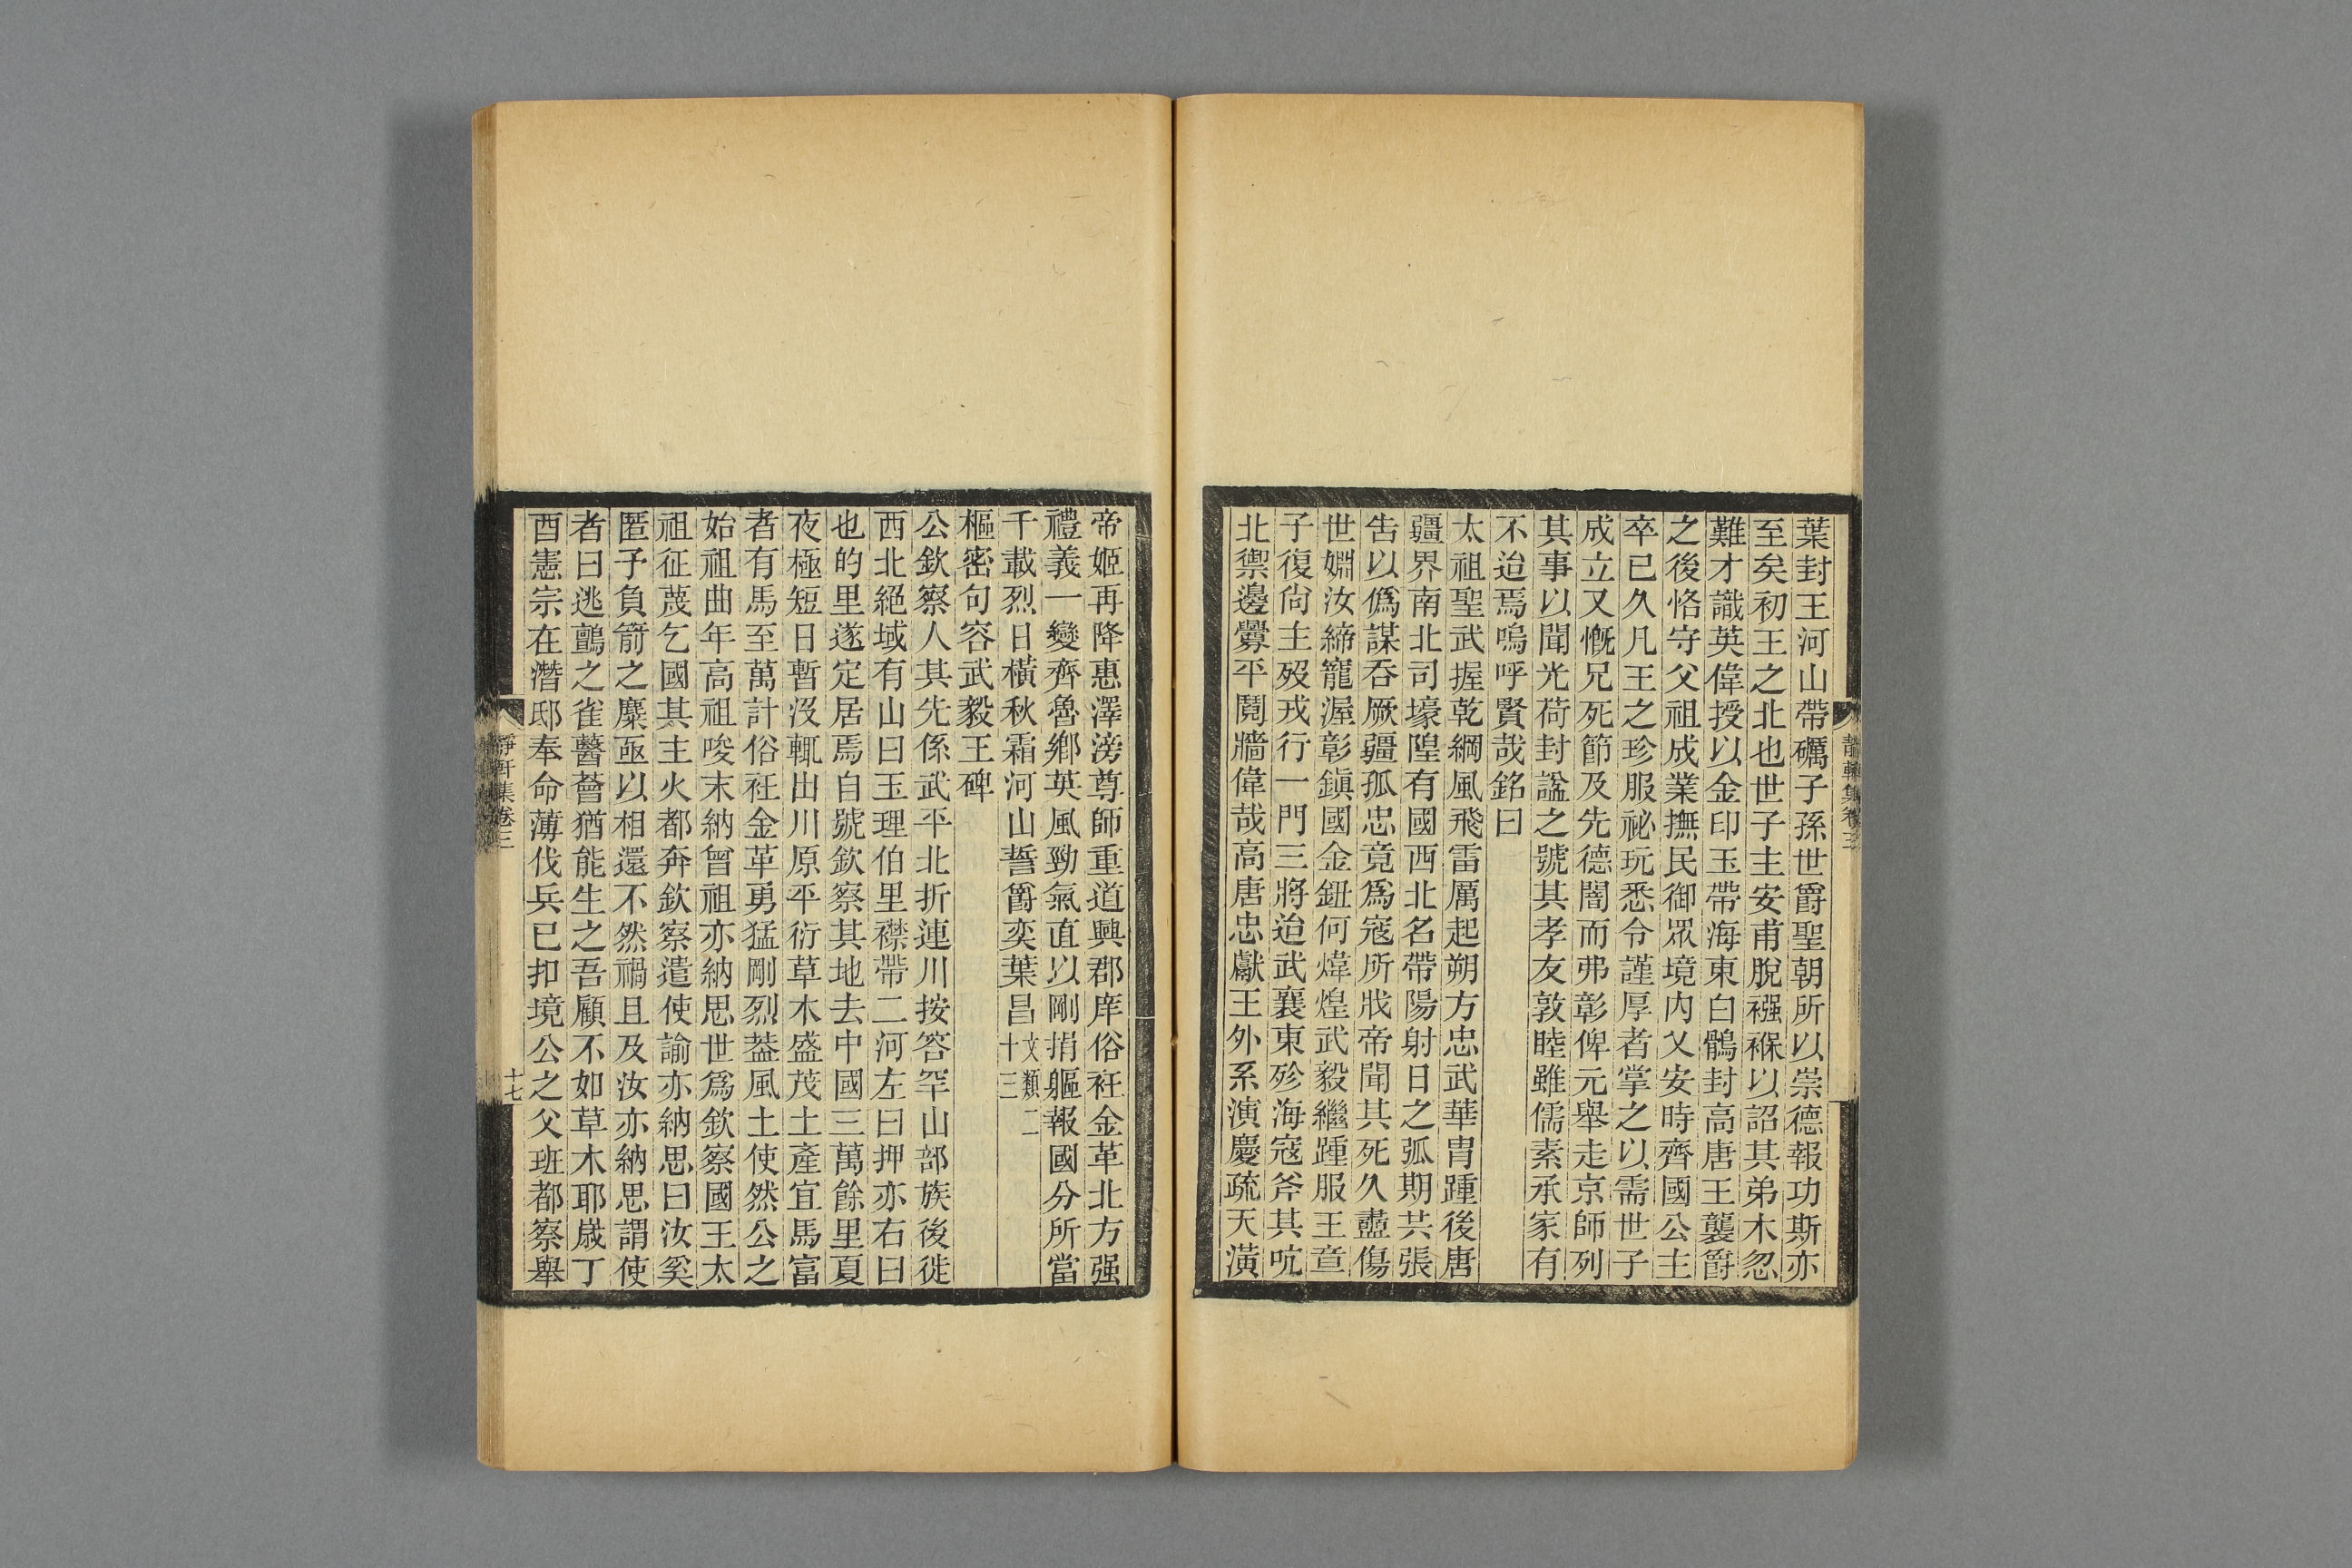 葉封王河山帶礪子孫世爵聖朝所以崇德報功斯亦
至矣初王之北也世子主安甫脫襁褓以詔其弟木忽
難才識英偉授以金印玉帶海東白鶻封高唐王襲爵
之後恪守父祖成業撫民御眾境内乂安時齊國公主
卒已久凡王之珍服祕玩悉令謹厚者掌之以需世子
成立又慨兄死節及先德闇而弗彰俾元舉走京師列
其事以聞光荷封諡之號其孝友敦睦雖儒素承家有
不迨焉嗚呼賢哉銘曰
太祖聖武握乾綱風飛雷厲起朔方忠武華胄踵後唐
疆界南北司壕隍有國西北名帶陽射日之弧期共張
告以僞謀吞厥疆孤忠竟爲寇所戕帝聞其死久盡傷
世婣汝締寵渥彰鎭國金鈕何煒煌武毅繼踵服王章
子復尙主歿戎行一門三將迨武襄東殄海寇斧其吭
北禦邊釁平鬩牆偉哉高唐忠獻王外系演慶疏天潢
靜軒集卷三
帝姬再降惠澤滂尊師重道興郡庠俗衽金革北方强
禮義一變齊魯鄉英風勁氣直以剛捐軀報國分所當
千載烈日橫秋霜河山誓爵奕葉昌文類二十三
樞密句容武毅王碑
公欽察人其先係武平北折連川按答罕山部族後徙
西北絕域有山曰玉理伯里襟帶二河左曰押亦右曰
也的里遂定居焉自號欽察其地去中國三萬餘里夏
夜極短日暫沒輒出川原平衍草木盛茂土產宜馬富
者有馬至萬計俗衽金革勇猛剛烈葢風土使然公之
始祖曲年高祖唆末納曾祖亦納思世爲欽察國王太
祖征蔑乞國其主火都奔欽察遣使諭亦納思曰汝奚
匿予負箭之麋亟以相還不然禍且及汝亦納思謂使
者曰逃鸇之雀藂薈猶能生之吾顧不如草木耶歲丁
酉憲宗在潛邸奉命薄伐兵已扣境公之父班都察舉
靜軒集卷三
十七